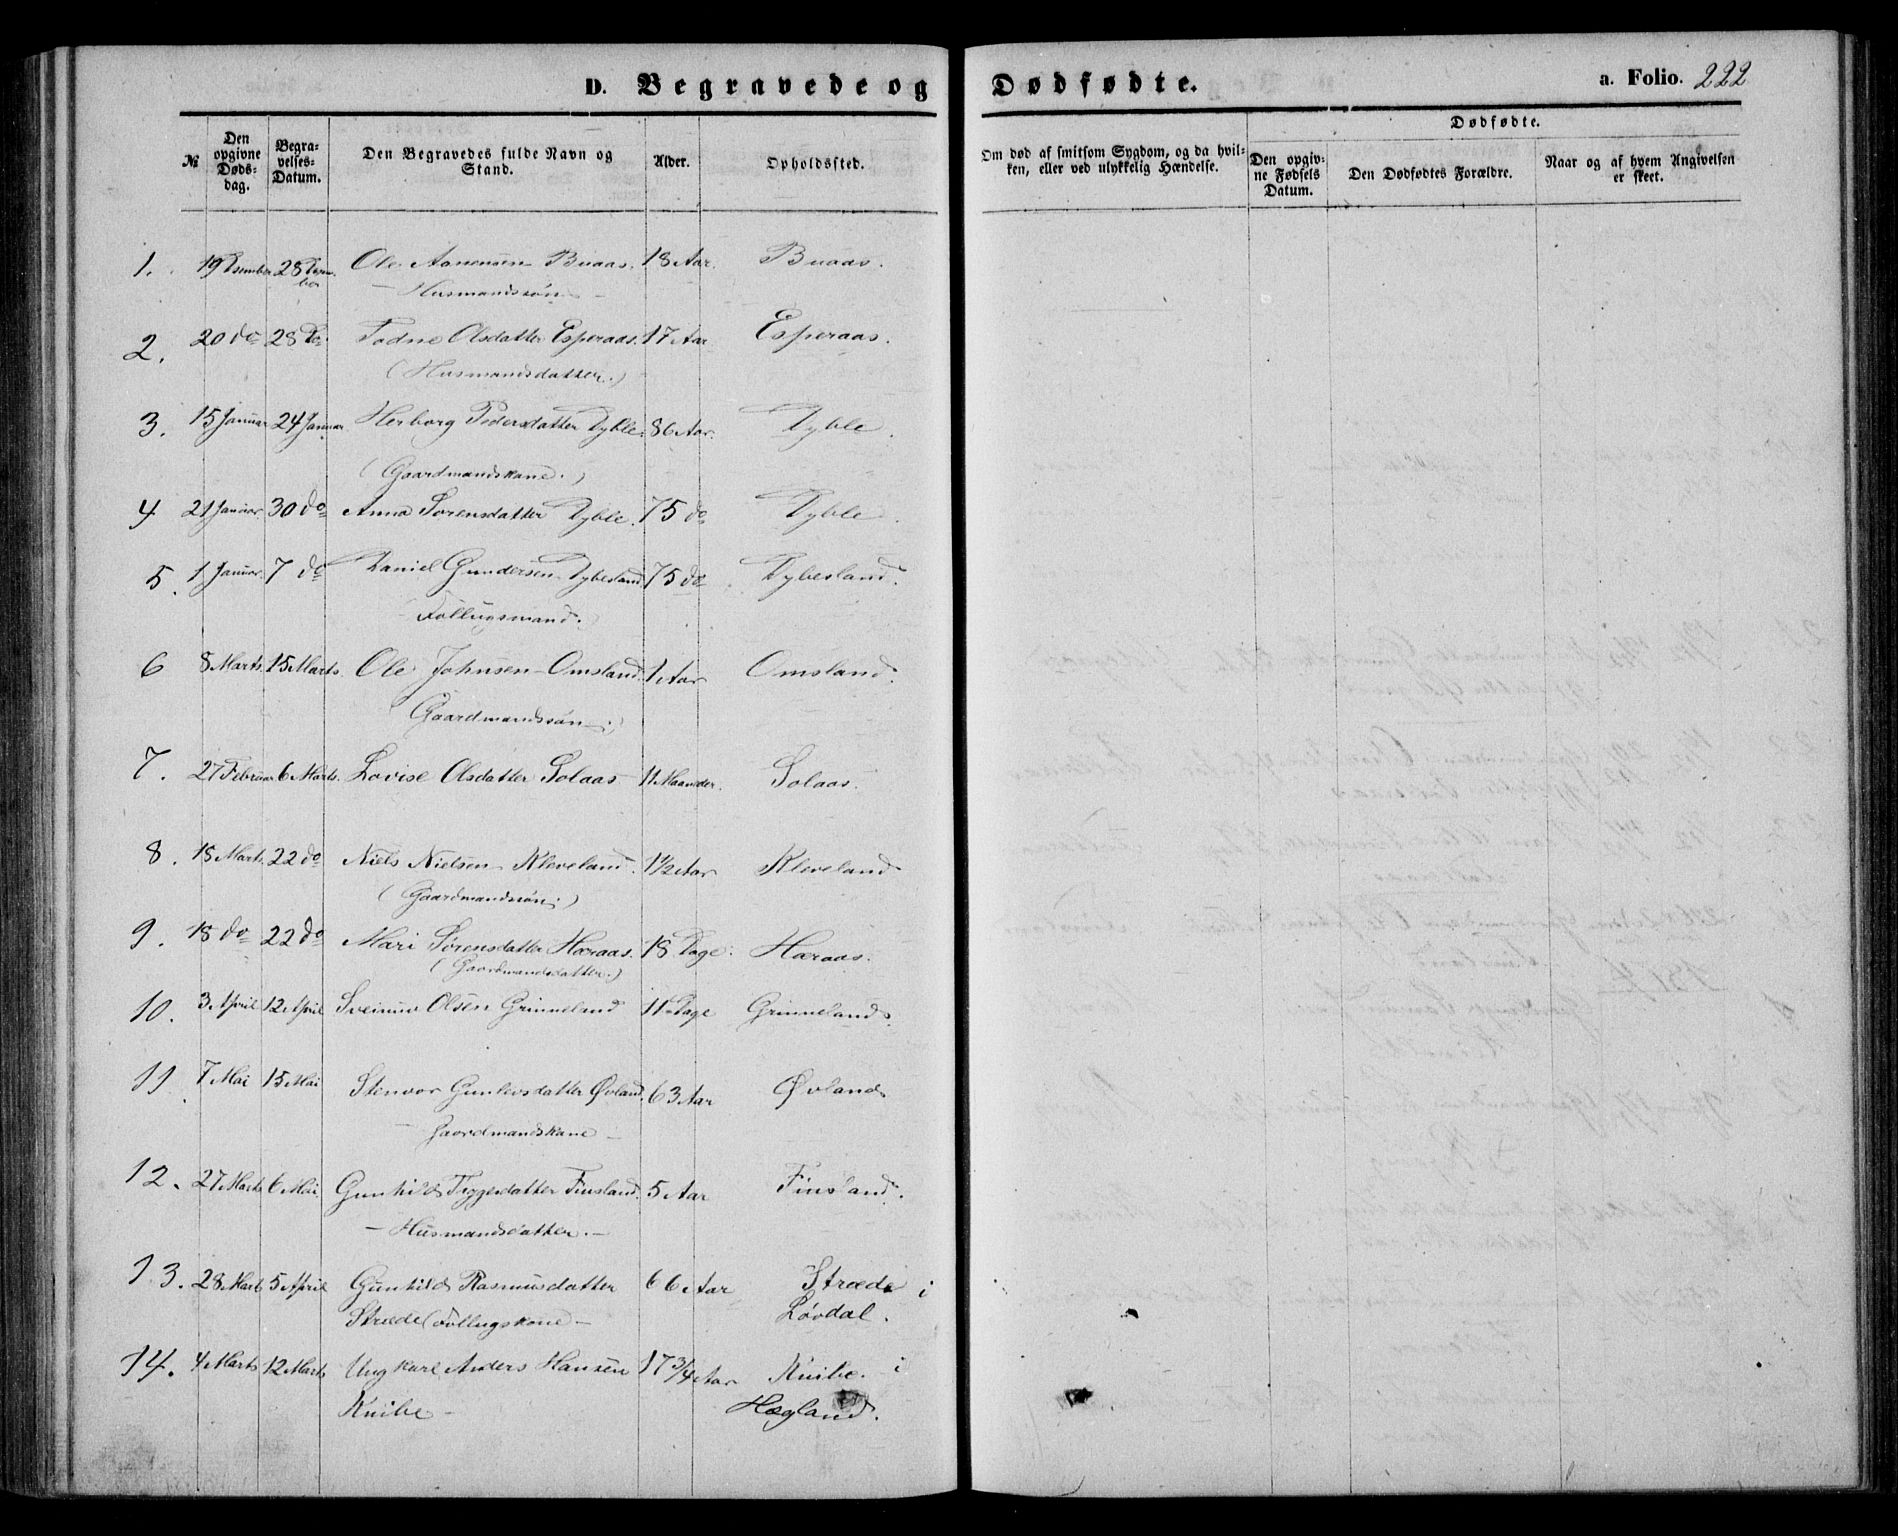 D. Begravede og Dødfødte. a. Folio. 222
№
Den opgivne Døds-dag.
Begra-velses-Datum.
Den Begravedes fulde Navn og Stand.
Alder.
Opholdssted.
Om død af smitsom Sygdom, og da hvil-ken, eller ved ulykkelig Hændelse.
Dødfødte.
Den opgiv-ne Fødsels Datum.
Den Dødfødtes Forældre.
Naar og af hvem Angivelsen er skeet.
1. 19 Desember 28 Desem-ber Ole Aanensen Buaas. 18 Aar. Buaas.
– Husmandssøn –
2. 20 do 28 do Tadne Olsdatter Esperaas. 17 Aar Esperaas.
(Husmandsdatter.)
3. 15 Januar 24 Januar Herborg Pedersdatter Dyble. 86 Aar. Dyble.
(Gaardmandskone.)
4 21 Januar. 30 do Anna Sorensdatter Dyble. 75 do Dyble.
5. 1 Januar. 7 do Daniel Gundersen Dybesland 75 do Dybesland.
Follugsmand.
6 8 Marts. 15 Marts. Ole Johnsen Omsland. 1 Aar Omsland.
(Gaardmandssøn.)
7. 27 Februar 6 Marts. Lovise Olsdatter Solaas 11 Maaneder. Solaas.
8. 15 Marts. 22 do Niels Nielsen Kleveland. 1½ Aar Kleveland
(Gaardmandssøn.)
9. 18 do 22 do Mari Sørensdatter Høraas. 18 Dage. Høraas.
(Gaardmandsdatter.)
10. 3 April 12 April Sveinuv Olsen Grimeland 11 Dage Grimeland.
11. 7 Mai 15 Mai Stenvor Gunlevsdatter Øvland. 63 Aar Øvland
– Gaardmandskone –
12. 27 Marts 6 Mai Gunhild Tyggesdatter Finsland. 5 Aar Finsland.
– Husmandsdatter. –
13. 28 Marts 5 April Gunhild Rasmusdatter 66 Aar Stræde i
Stræde (Follugskone – Løvdal.
14. 4 Marts 12 Marts Ungkarl Anders Hansen 17 3/4 Aar Knibe. i
Knibe – Hægland.